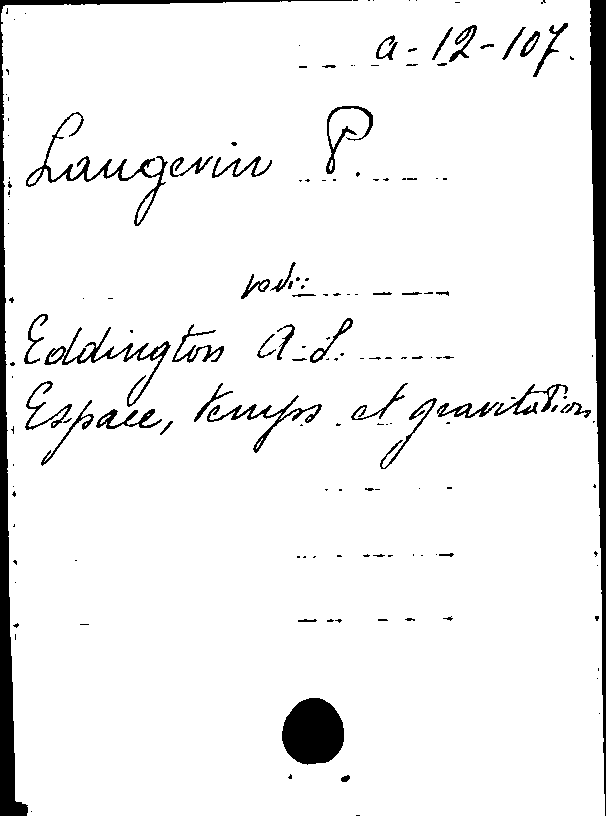 a-12-107.
Langevin P.
vedi:
Eddington A.S.
Espace, temps et gravitation